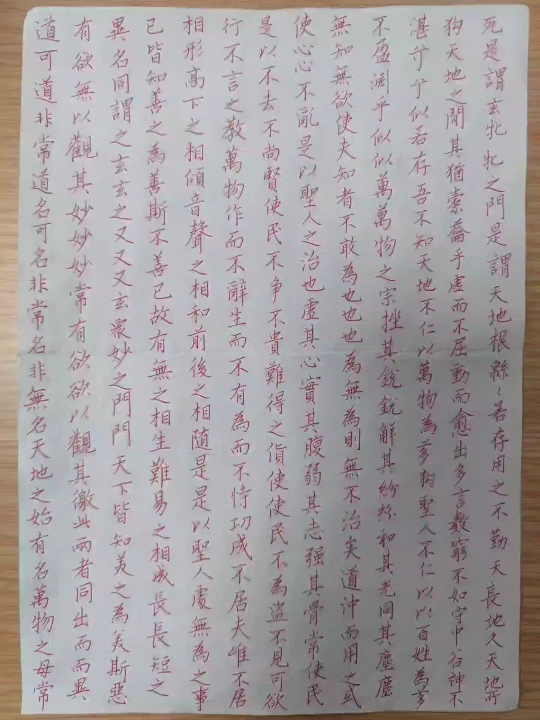 道可道非常道名可名非常名非無名天地之始有名萬物之母常
有欲無以觀其妙妙妙常有欲欲以觀其徼此兩者同出而而異
異名同謂之玄玄之又又又玄眾妙之門門天下皆知美之為美斯惡
已皆知善之為善斯不善已故有無之相生難易之相成長長短之
相形高下之相傾音聲之相和前後之相隨是是以聖人處無為之事
行不言之教萬物作而不辭生而不有為而不恃功成不居夫唯不居
是以不去不尚賢使民不争不貴難得之貨使使民不為盜不見可欲
使心心不亂是以聖人之治也虛其心實其腹弱其志強其骨常使民
無知無欲使夫知者不敢為也也也為無為則無不治矣道沖而用之或
不盈淵乎似似萬萬物之宗挫其銳銳解其紛紛和其光同其塵塵
湛兮兮似若存吾不知天地不仁以萬物為芻狗聖人不仁以以百姓為芻
狗天地之間其猶橐籥乎虛而不屈動而愈出多言數窮不如守中谷神不
死是謂玄牝牝之門是謂天地根緜〻若存用之不勤天長地久天地所